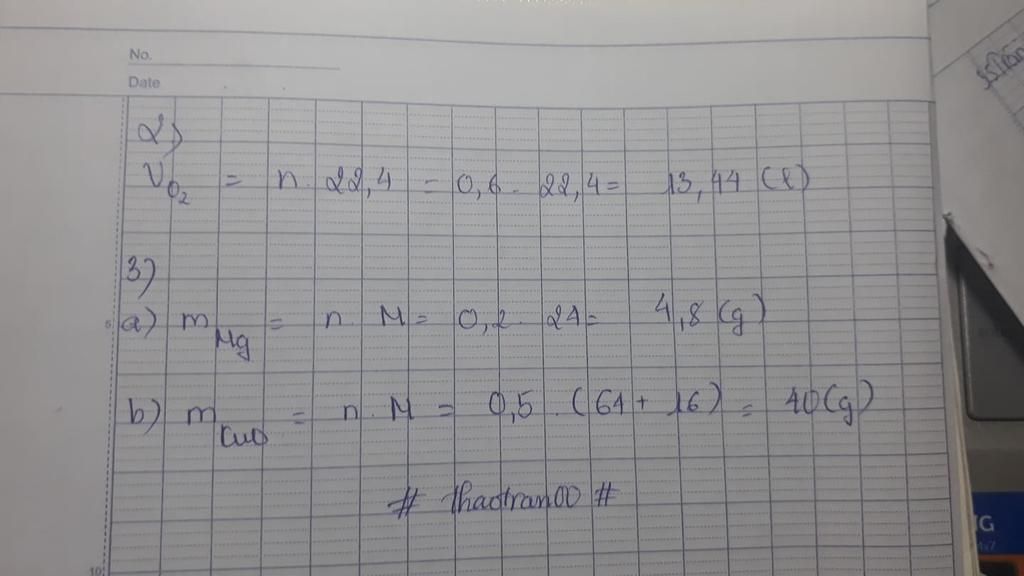 No.
Date
2)
V O₂ = n. 22,4 = 0,6. 22,4 = 13,44 (l)
3)
a) m Mg = n. M = 0,2. 24 = 4,8 (g)
b) m CuO = n. M = 0,5. (64 + 16) = 40 (g)
# thaotran00 #
5
10